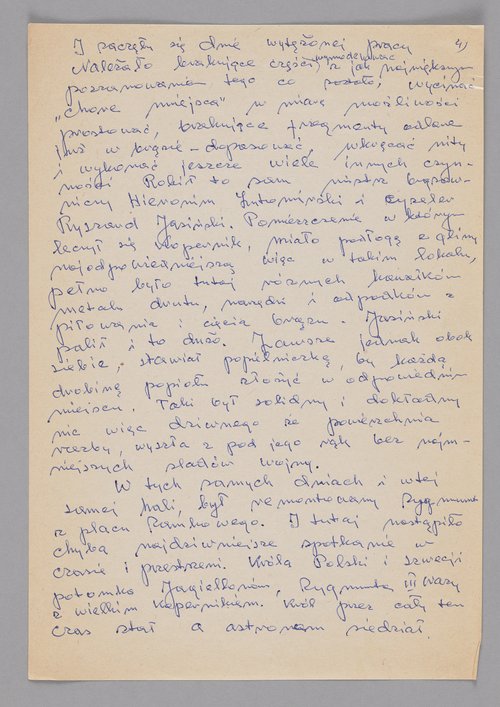 I zaczęły się dnie wytężonej pracy 4)
Należało brakujące części wymodelować z jak największym
poszanowaniem tego co zostało, wycinać
„chore miejsca” w miarę możliwości
prostować, brakujące fragmenty odlane
już w brązie – dopasować, wkręcać nity
i wykonać jeszcze wiele innych czyn-
ności Robił to sam mistrz brązow-
niczy Hieronim i cyzeler
Ryszard Jasiński. Pomieszczenie w którym
leczył się Kopernik, miało podłogę z gliny
najodpowiedniejszą więc w takim lokalu,
pełno było tutaj różnych kawałków
metalu drutu, narzędzi i odpadków z
piłowania i cięcia brązu. Jasiński
palił i to dużo. Zawsze jednak obok
siebie, stawiał popielniczkę, by każdą
drobinę popiołu złożyć w odpowiednim
miejscu. Taki był solidny i dokładny
nic więc dziwnego że powierzchnia
rzeźby, wyszła z pod jego rąk bez najm-
niejszych śladów wojny.
W tych samych dniach i w tej
samej hali, był remontowany Zygmunt
z placu Zamkowego. I tutaj nastąpiło
chyba najdziwniejsze spotkanie w
czasie i przestrzeni. Króla Polski i Szwecji
potomka Jagiellonów, Zygmunta III Wazy
z wielkim Kopernikiem. Król przez cały ten
czas stał a astronom siedział.